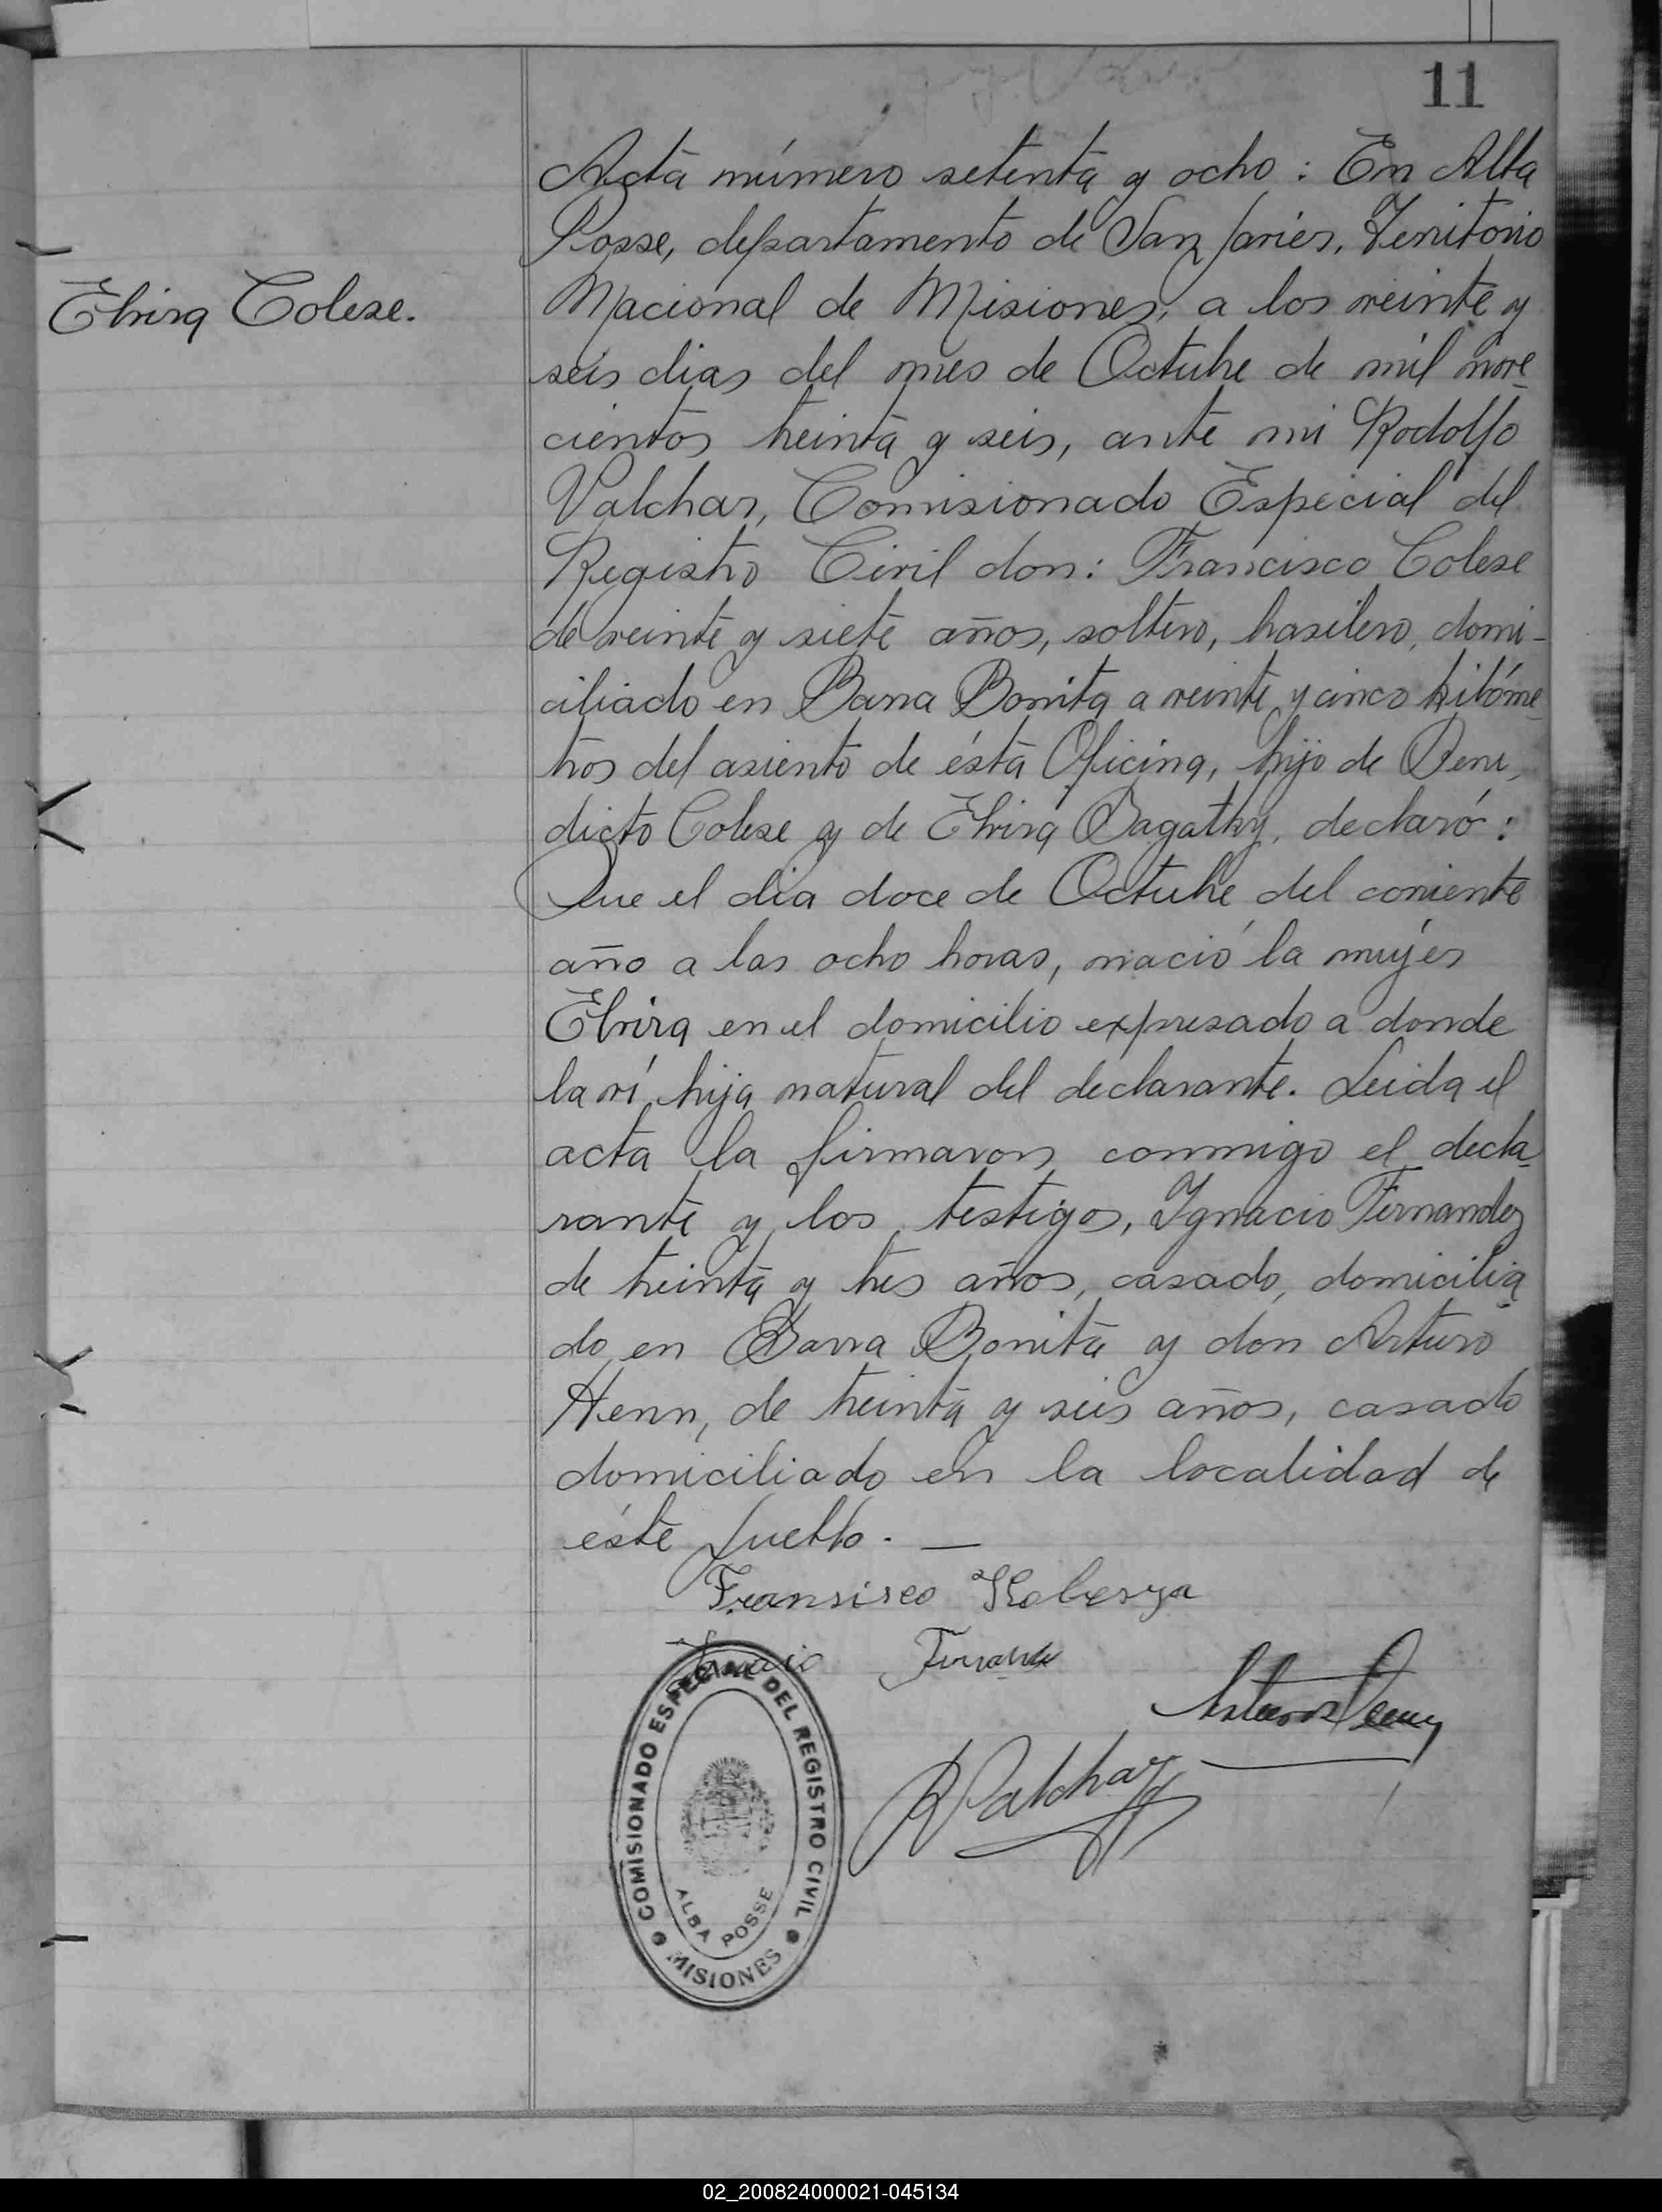 11
Acta número setenta y ocho: En Alba
Posse, departamento de San Javier, Territorio
Nacional de Misiones, a los veinte y
seis dias del mes de Octubre de mil nove
cientos treinta y seis, ante mi Rodolfo
Valchar, Comisionado Especial del
Registro Civil don: Francisco Colese
de veinte y siete años, soltero, brasilero, domi-
ciliado en Barra Bonita a veinte y cinco kilóme
tros del asiento de ésta Oficina, hijo de Bene
dicto Colese y de Elvira Bagathy, declaró:
Que el dia doce de Octubre del corriente
año a las ocho horas, nació la mujer
Elvira en el domicilio expresado a donde
la ví hija natural del declarante. Leida el
acta la firmaron conmigo el decla
rante y los testigos, Ignacio Fernandez
de treinta y tres años, casado, domicilia
do en Barra Bonita y don Arturo
Henn, de treinta y seis años, casado
domiciliado en la localidad de
éste pueblo. —
Elvira Colese.
Fransisco
R Valchar
COMISIONADO ESPECIAL DEL REGISTRO CIVIL
ALBA POSSE
MISIONES
02_200824000021-045134